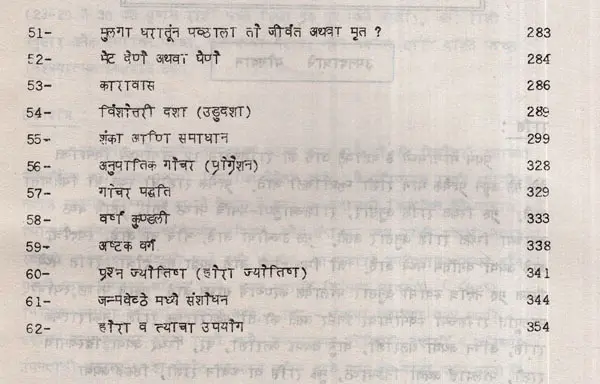 51- मुलगा घरातून पळाला तो जीवंत अथवा मृत ? 283
52- भेट देणे अथवा घेणे 284
53- कारावास 286
54- विंशोत्तरी दशा (उडुदशा) 289
55- शंका आणि समाधान 299
56- अनुपातिक गोचर (प्रोग्रेशन) 328
57- गोचर पद्धति 329
58- वर्षा कुण्डली 333
59- अष्टक वर्ग 338
60- प्रश्न ज्योतिषा (होरा ज्योतिषा) 341
61- जन्मवेळे मध्ये संशोधन 344
62- होरा व त्याचा उपयोग 354